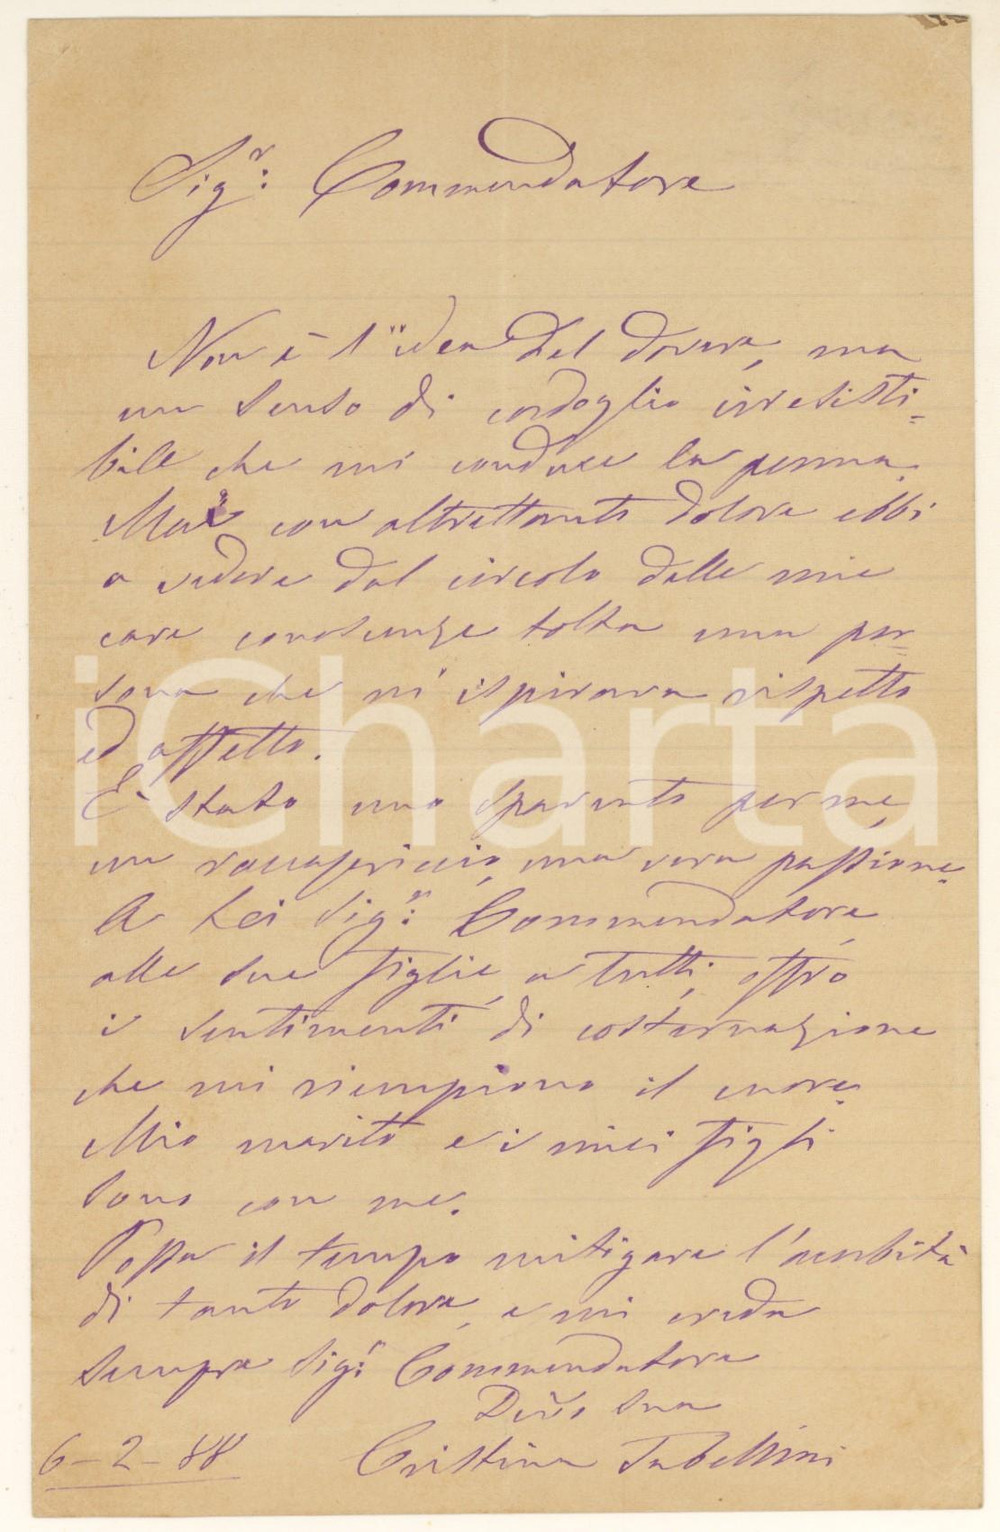 Sig.r: Commendatore
Non è l'idea del dovere, ma
un senso di cordoglio irresisti=
bile che mi conduce la penna.
Mai con altrettanto dolore ebbi
a vedere dal circolo delle mie
care conoscenze tolta una per=
sona che m'ispirava rispetto
ed affetto.
È stato uno spavento per me,
un raccapriccio, una vera passione.
A Lei Sig.r: Commendatore,
alle sue figlie, a tutti, offro
i sentimenti di costernazione
che mi riempiono il cuore.
Mio marito e i miei figli
sono con me.
Possa il tempo mitigare l'acerbità
di tanto dolore, e mi creda
sempre Sig.r: Commendatore
sua
6-2-88 Cristina Tabellini
iCharta